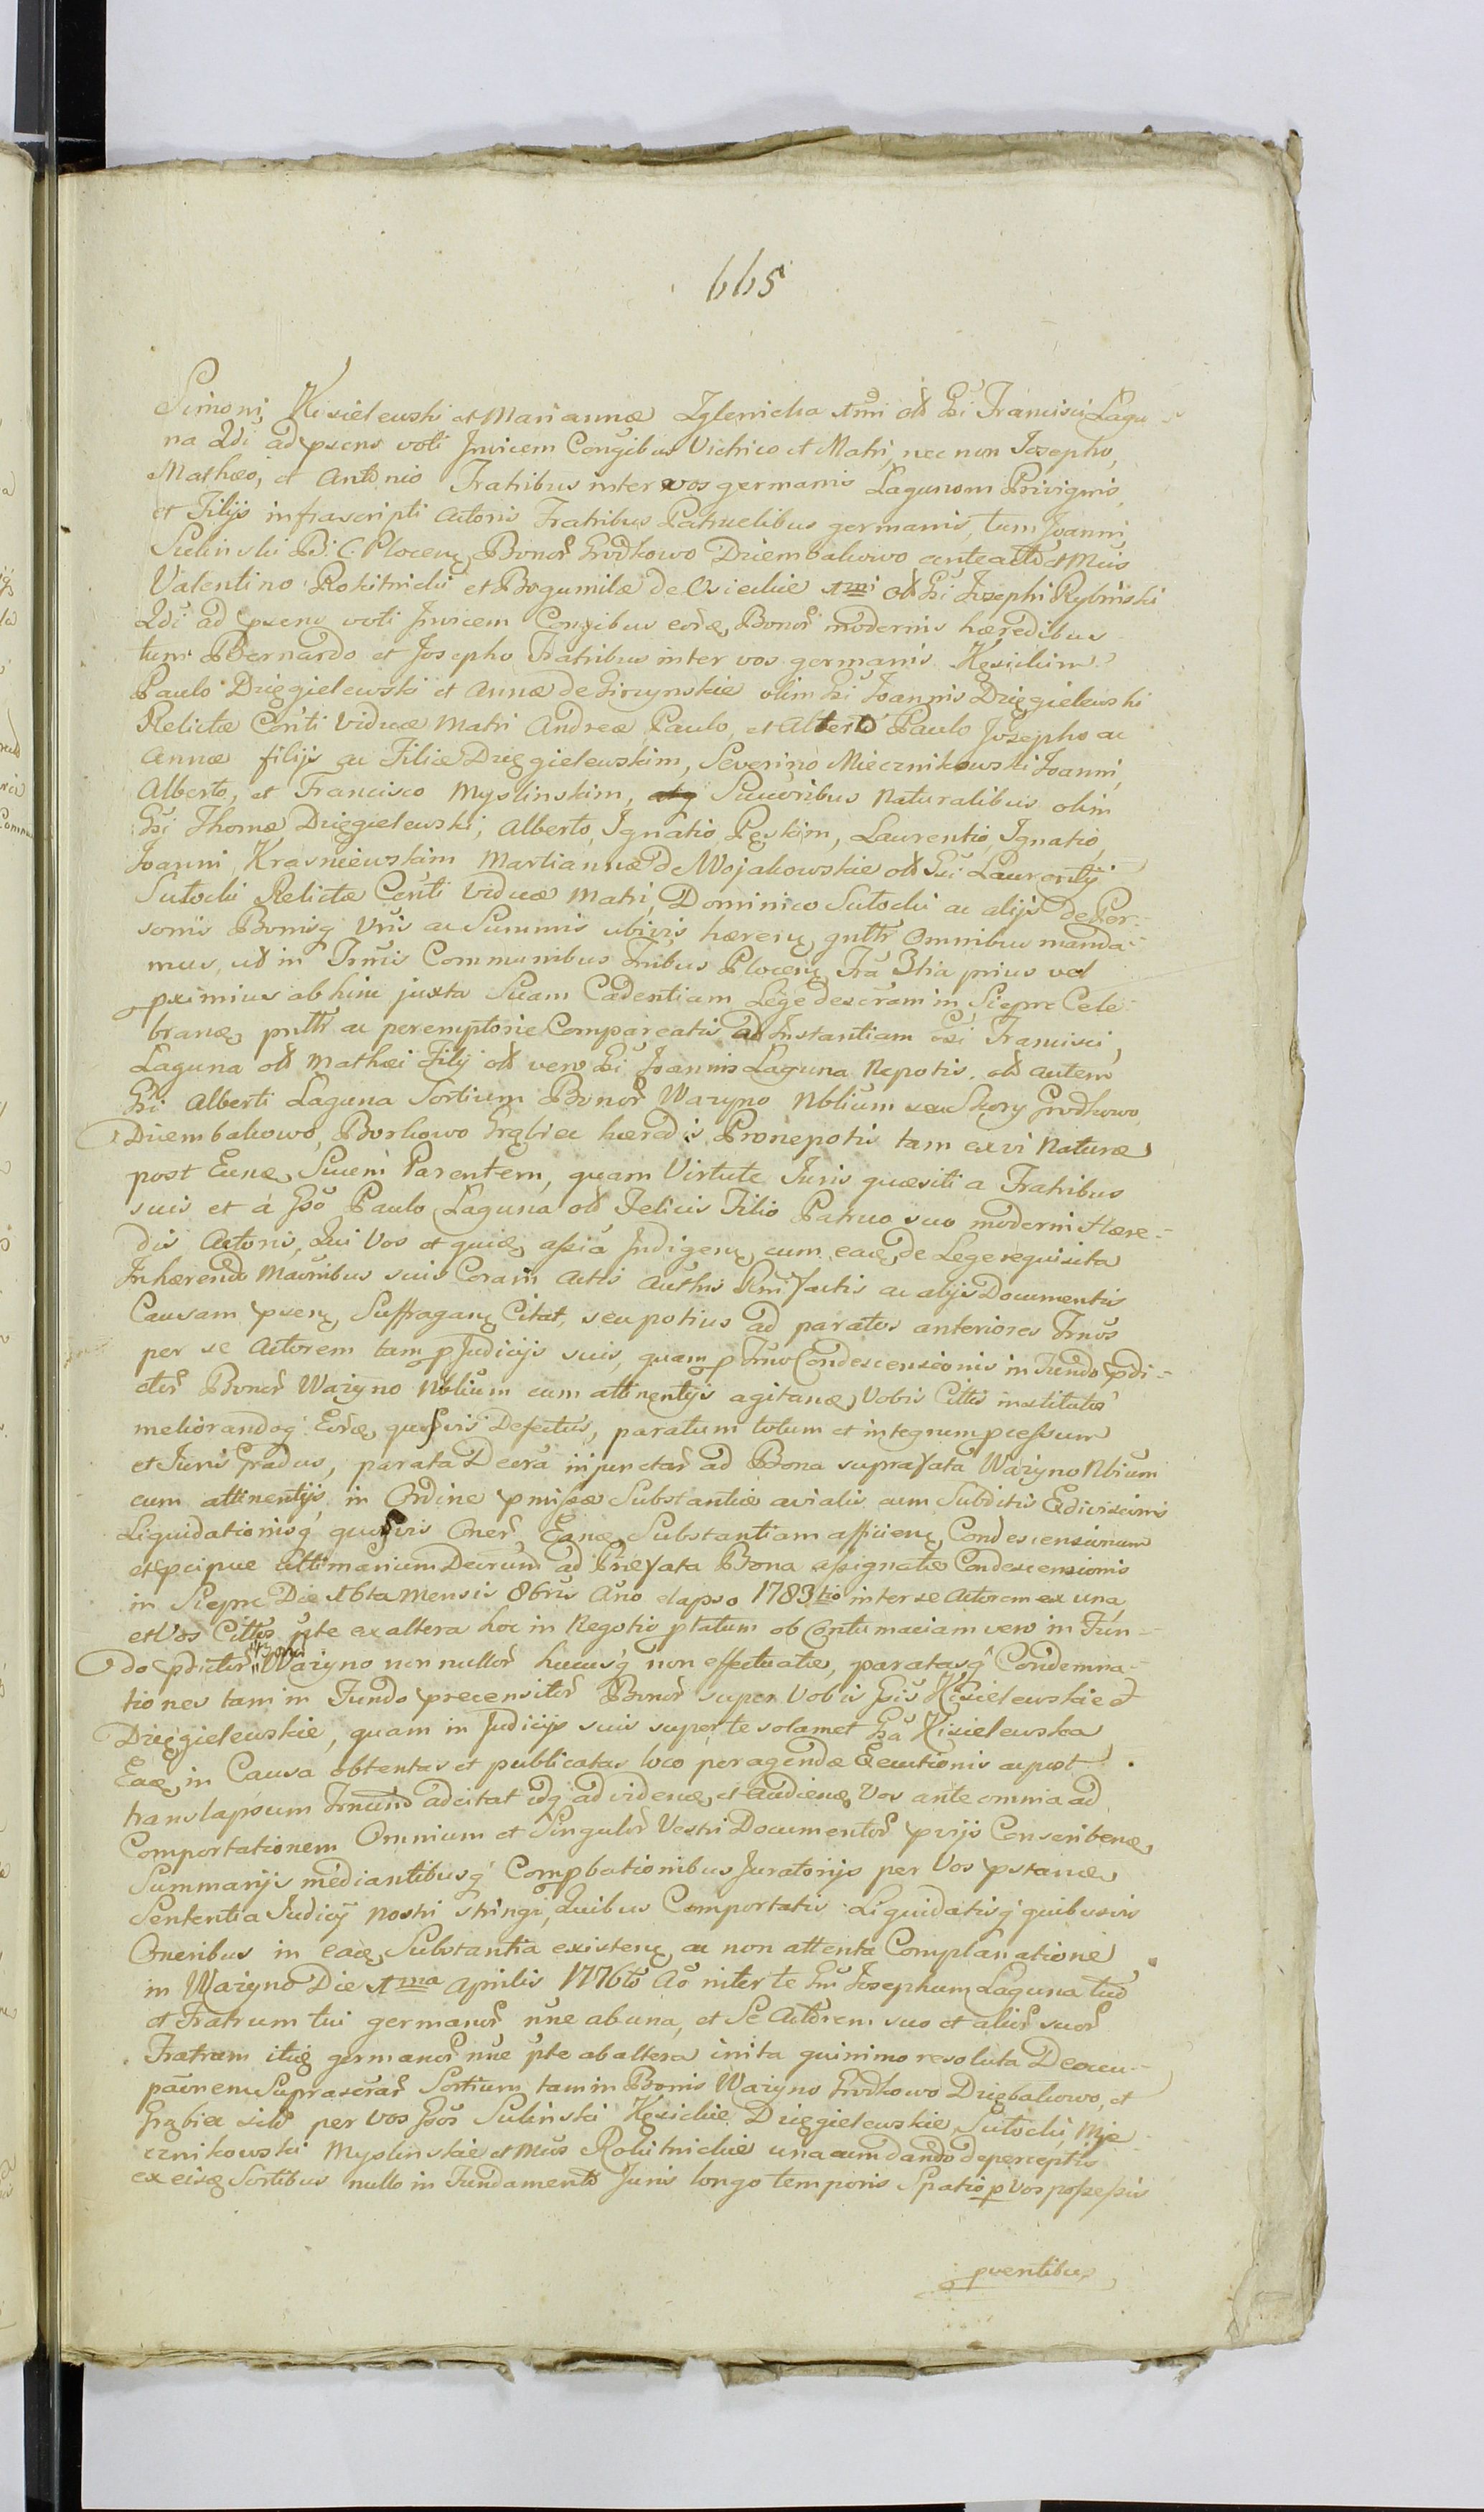 665
Simoni Kisielewski et Mariannæ Zglenicka 1mi olī Gsi Francisci Lagu-
na 2di ad præsens voti Invicem Conjgibus Victrico et Matri, nec non Josepho,
Mathæo, et Antonio Fratribus inter vos germanis Lagunom Privignis,
et Filijs infrascripti Actoris Fratribus Patruelibus germanis, tum Joanni
Sulinski B. C. Plocen, Bonor Grodkowo Dziembakowo anteacto et Mcis
Valentino Rokitnicki et Bogumilæ de Osieckie 1mi olī Gsi Josephi Rybinski
2di ad præsens voti Invicem Conjgibus eord, Bonor modernis hæredibus
tum Bernardo et Josepho Fratribus inter vos germanis Kęsickim
Paulo Dzięgielewski et Annæ de Girzynskie olim Gsi Joannis Dzięgielewski
Relictæ Conti Viduæ Matri Andreæ Paulo, et Alberto Paulo Josepho ac
Annæ filijs ac Filiæ Dzięgielewskim, Severino Miecznikowski Joanni,
Alberto, et Francisco Myslinskim, Succoribus Naturalibus olim
Gsi Thomæ Dzięgielewski, Alberto, Ignatio Pęskim, Laurentio, Ignatio,
Joanni Krasniewskim Martiannæ de Wojakowskie olī Gsi Laurentij
Sutocki Relictæ Conti Viduæ Matri, Dominico Sutocki ac alijs de Per-
sonis Bonisq Vris ac Summis ubivis hæren, gnttr Omnibus manda-
mus, ut in Trnis Communibus Tribus Plocen, Tra 3tia prius vel
pximius ab hinc juxta Suam Cadentiam Lege descram in Sieprc Cele-
brand, pnttr ac peremptorie Compareatis ad Instantiam Gsi Francisci
Laguna olī Mathæi Filij olī vero Gsi Joannis Laguna Nepotis, olī autem
Gsi Alberti Laguna Sortium Bonor Wazyno Nblium seu Skory Grodkowo
Dziembakowo, Borkowo Grąbiec hæredis, Pronepotis tam ex vi Naturæ
post Eund, Succni Parentem, quam Virtute Juris quæsiti a Fratribus
suis et à Gso Paulo Laguna olī Felicis Filio Patruo suo moderni Hære-
dis Actoris, Qui Vos et quid, assia Indigen, cum ead, de Lege requisita
Inhærendo Maonibus suis Coram Actis Authis Rni factis ac alijs Documentis
Causam præsen, Suffragan, Citat, seu potius ad paratos anteriores Trnos
per se Actorem tam p Judicijs suis, quam p Trno Condescensionis in Fundo pdi-
ctor Bonor Wazyno Nblium cum attinentijs agitand, Vobis Cittis institutos
meliorandoq Eord, quosvis Defectus, paratum totum et integrum pcessum
et Juris Gradus, parata Decra injunctar ad Bona suprafata Wazyno Nblium
cum attinentijs in Ordine pmissæ Substantiæ avialis cum Subditis Exdivisionis
Liquidationisq quorvis Oner, Eand Substantiam afficien, Condescensionum
et pcipue Ultimarium Decrum ad Prefata Bona assignatæ Condescensionis
in Sieprc Die 16ta Mensis 8bris Ano elapso 1783tio inter se Actorem ex una,
et Vos Cittos pte ex altera hoc in Negotio platum ob Contumaciam vero in Fun-
do pdictor Bonor Wazyno non nullor hucusq non effectuatæ, paratasq Condemna-
tiones tam in Fundo precensitor Bonor super Vobis Gsis Kisielewskie et
Dzięgielewskie, quam in Judicijs suis super te solamet Gsa Kisielewska
Ead, in Causa obtentas et publicatas loco peragendæ Executionis ac post
translapsum Trnum adcitat idq ad vidend, et Audiend, Vos ante omnia ad
Comportationem Omnium et Singulor Vestri Documentor prijs Conscribend,
Summarijs mediantibusq Compbationibus Juratorijs per Vos pstand,
Sententia Judicij Nostri stringi, Quibus Comportatis Liquidatisq quibusvis
Oneribus in ead, Substantia existen, ac non attenta Complanatione
in Wazyno Die 1ma Aprilis 1776to Ao inter te Gsm Josephum Laguna tuo
et Fratrum tui germanor nne ab una, et Se Actorem suo et alior suor
Fratrum itid, germanor nne pte ab altera inita quinimo resoluta Deoccu-
paonem Suprascrar Sortium tam in Bonis Wazyno Grodkowo Dziębakowo, et
Grąbiec sitar per Vos Gsos Sulinski Kęsickie Dzięgielewskie Sutocki, Mie-
cznikowski Myslinskie et Mcos Rokitnickie una cum dando de perceptis
ex eisd Sortibus nullo in Fundamento Juris longo temporis Spatio p Vos possessis
pventibus,